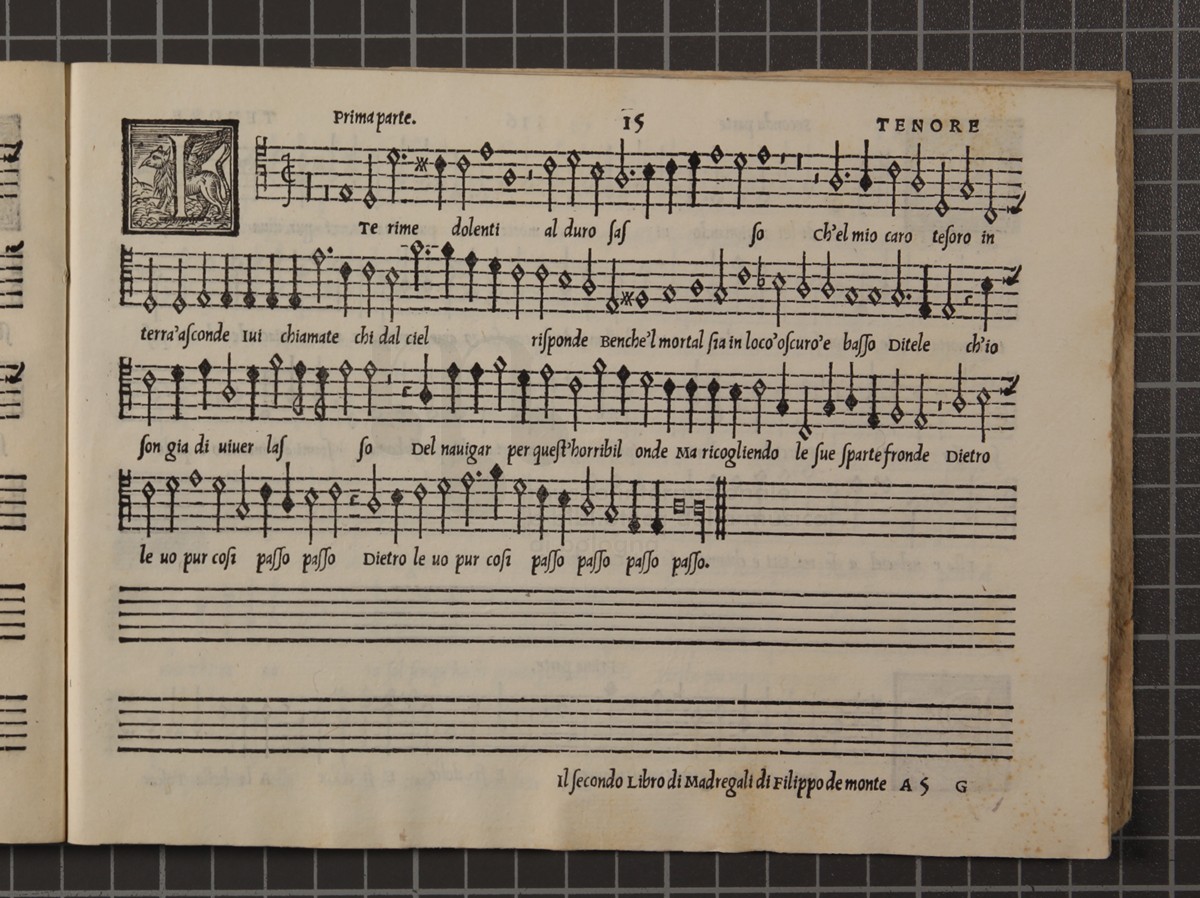 Prima parte. 15 TENORE
I Te rime dolenti al duro ſaſ ſo ch'el mio caro teſoro in
terra'aſconde Iui chiamate chi dal ciel riſponde Benche'l mortal ſia in loco'oſcuro'e baſſo Ditele ch'io
ſon gia di uiuer laſ ſo Del nauigar per queſt'horribil onde Ma ricogliendo le ſue ſparte fronde Dietro
le uo pur coſi paſſo paſſo Dietro le uo pur coſi paſſo paſſo paſſo paſſo.
Il ſecondo Libro di Madregali di Filippo de monte A 5 G